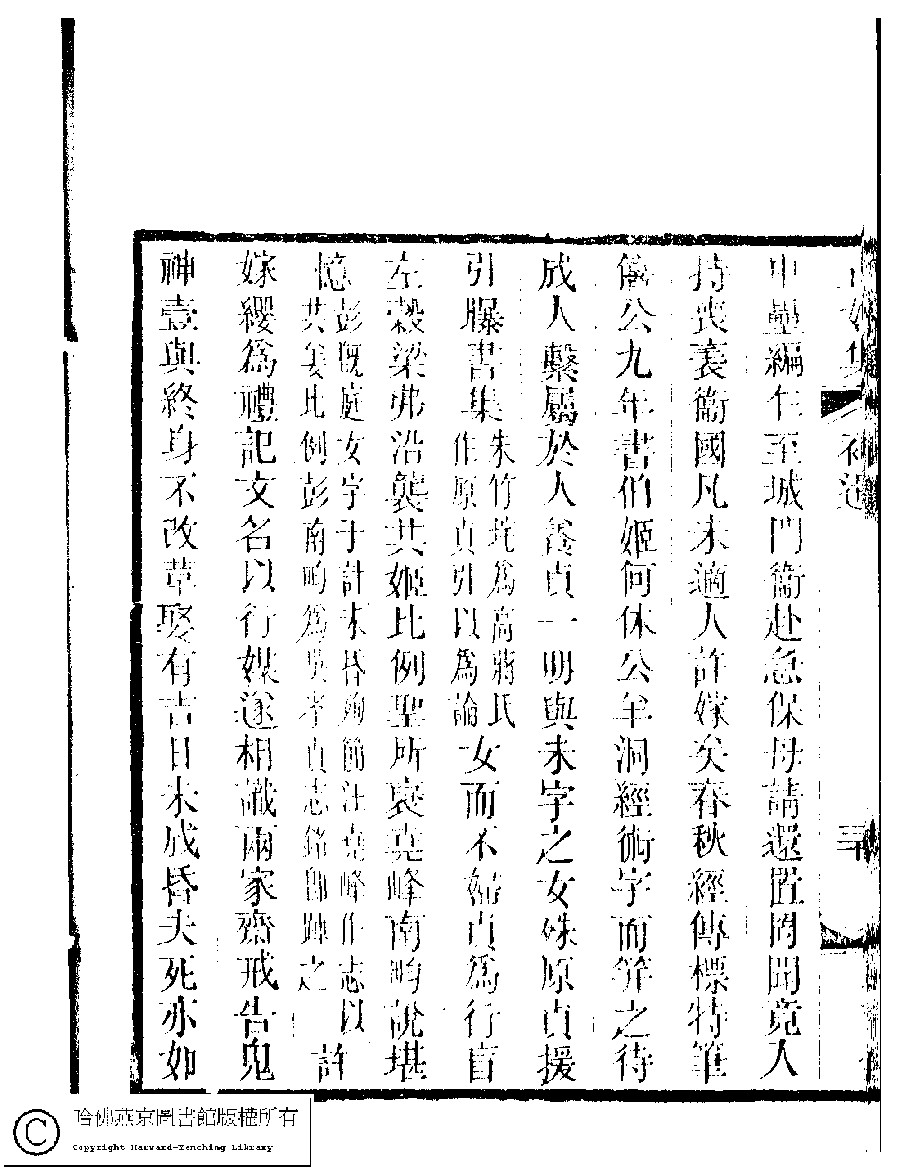 中壘編年至城門衞赴急保母請還置罔聞竟入
持喪衰衞國凡未適人許嫁矣春秋經傳標特筆
僖公九年書伯姬何休公羊洞經術字而筓之待
成人繫屬於人養貞一明與未字之女殊原貞援
引曝書集朱竹垞爲高蔣氏作原貞引以爲論女而不婦貞爲行盲
左穀梁弗沿襲共姬比例聖所衷堯峰南畇說堪
憶彭旣庭女字于計未昏殉節汪堯峰作志以共姜比例彭南畇爲吳孝貞志銘師踵之許
嫁纓爲禮記文名以行媒遂相識兩家齋戒告鬼
神壹與終身不改草娶有吉日未成昏夫死亦如
補遺
哈佛燕京圖書館版權所有
Copyright Harvard-Yenching Library